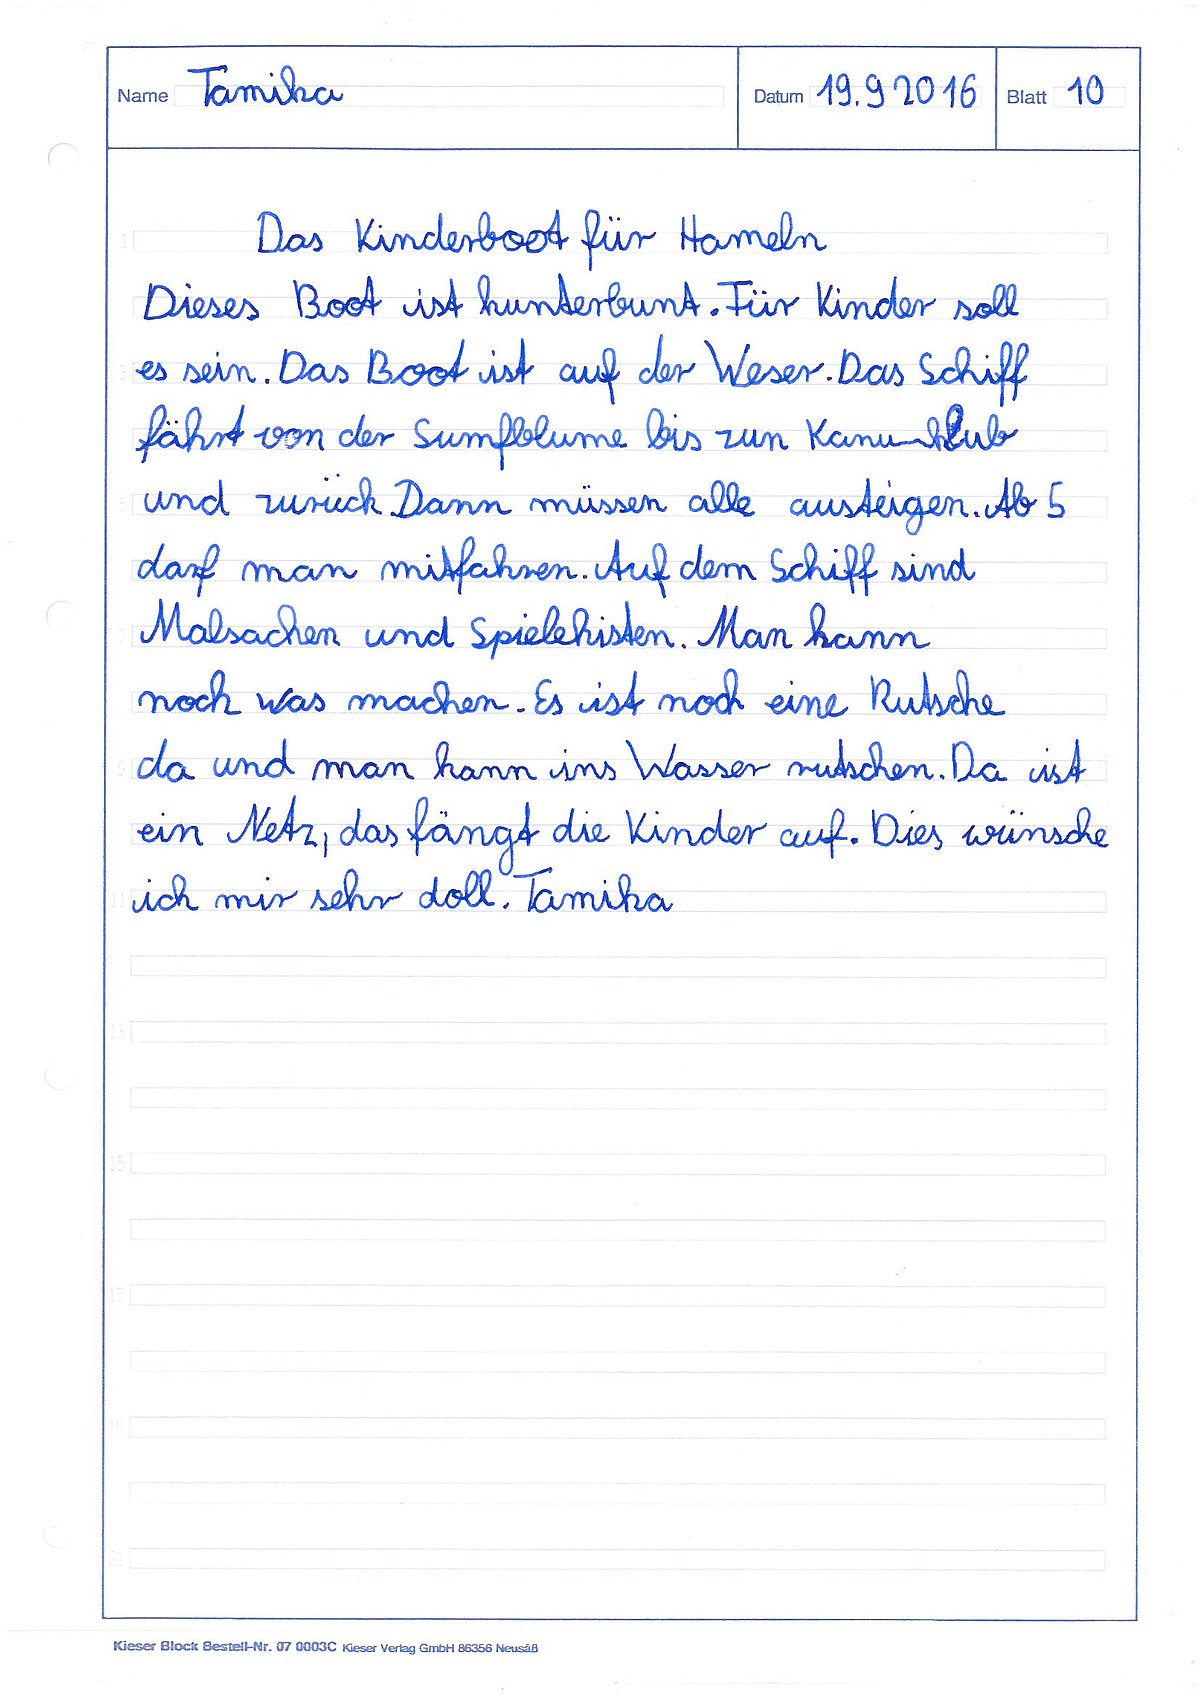 Name Tamika Datum 19.9 2016 Blatt 10
Das Kinderboot für Hameln
1
Dieses Boot ist kunterbunt. Für Kinder soll
3 es sein. Das Boot ist auf der Weser. Das Schiff
fährt von der Sumpfblume bis zun Kanu-Klub
5 und zurück. Dann müssen alle austeigen. Ab 5
darf man mitfahren. Auf dem Schiff sind
7 Malsachen und Spielekisten. Man kann
noch was machen. Es ist noch eine Rutsche
9 da und man kann ins Wasser rutschen. Da ist
ein Netz, das fängt die Kinder auf. Dies wünsche
11 ich mir sehr doll. Tamika
13
15
17
19
21
Kieser Block Bestell-Nr. 07 0003C Kieser Verlag GmbH 86356 Neusäß